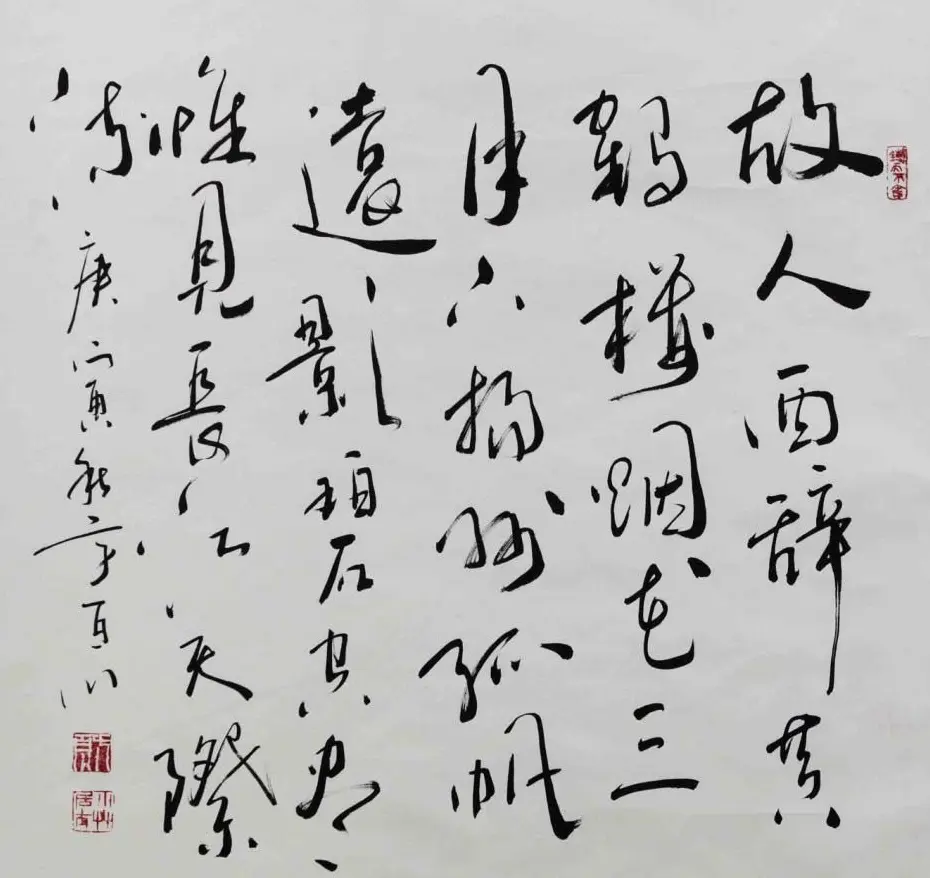 故人西辞黄
鶴樓烟花三
月下揚州孤帆
遠影碧空盡
惟見長江天際
流 庚寅秋 百川